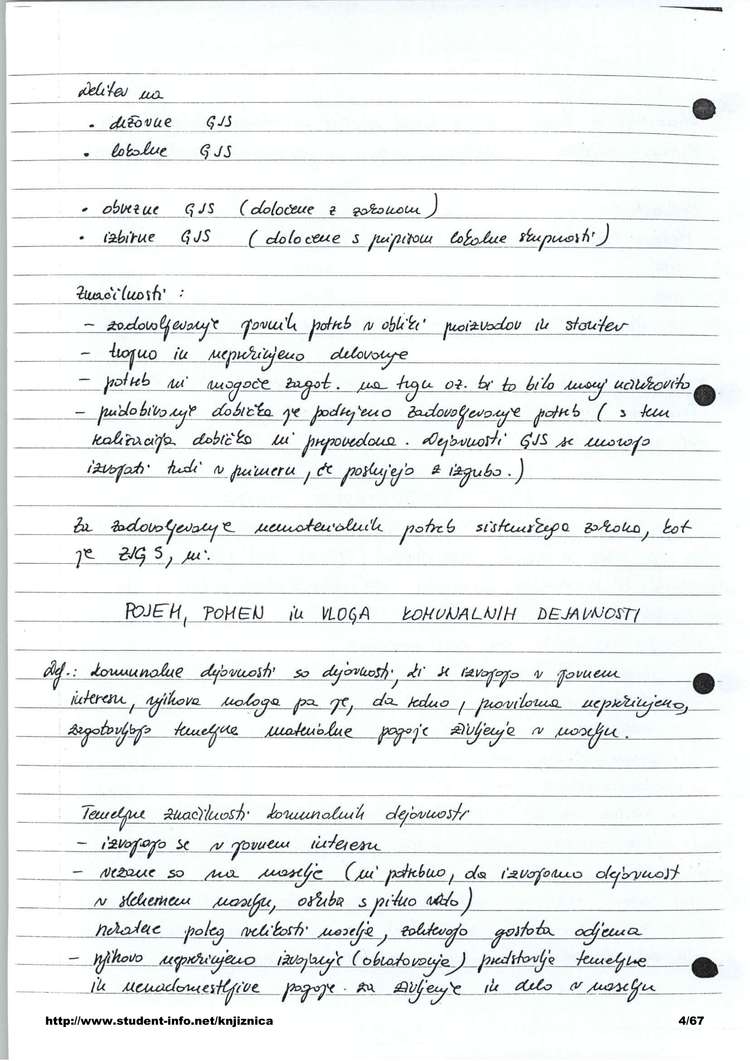 Delitev na
• državne GJS
• lokalne GJS
• obvezne GJS (določene z zakonom)
• izbirne GJS (določene s pripisom lokalne skupnosti)
Značilnosti :
- zadovoljevanje javnih potreb v obliki proizvodov in storitev
- trajno in neprekinjeno delovanje
- potreb ni mogoče zagot. na trgu oz. bi to bilo manj učinkovito
- pridobivanje dobička je podrejeno zadovoljevanje potreb ( s tem
realizacija dobička ni prepovedana. Dejavnosti GJS se morajo
izvajati tudi v primeru, če poslujejo z izgubo.)
Za zadovoljevanje nematerialnih potreb sistemskega zakona, kot
je ZJGS, ni.
POJEM, POMEN in VLOGA KOMUNALNIH DEJAVNOSTI
Def.: komunalne dejavnosti so dejavnosti, ki se izvajajo v javnem
interesu, njihova naloga pa je, da redno, praviloma neprekinjeno,
zagotavljajo temeljne materialne pogoje življenja v naselju.
Temeljne značilnosti komunalnih dejavnosti
- izvajajo se v javnem interesu
- vezane so na naselje (ni potrebno, da izvajamo dejavnost
v slehernem naselju, oskrba s pitno vodo)
nekatere poleg velikosti naselja, zahtevajo gostota odjema
- njihovo neprekinjeno izvajanje (obratovanje) predstavlja temeljne
in nenadomestljive pogoje za življenje in delo v naselju
http://www.student-info.net/knjiznica
4/67